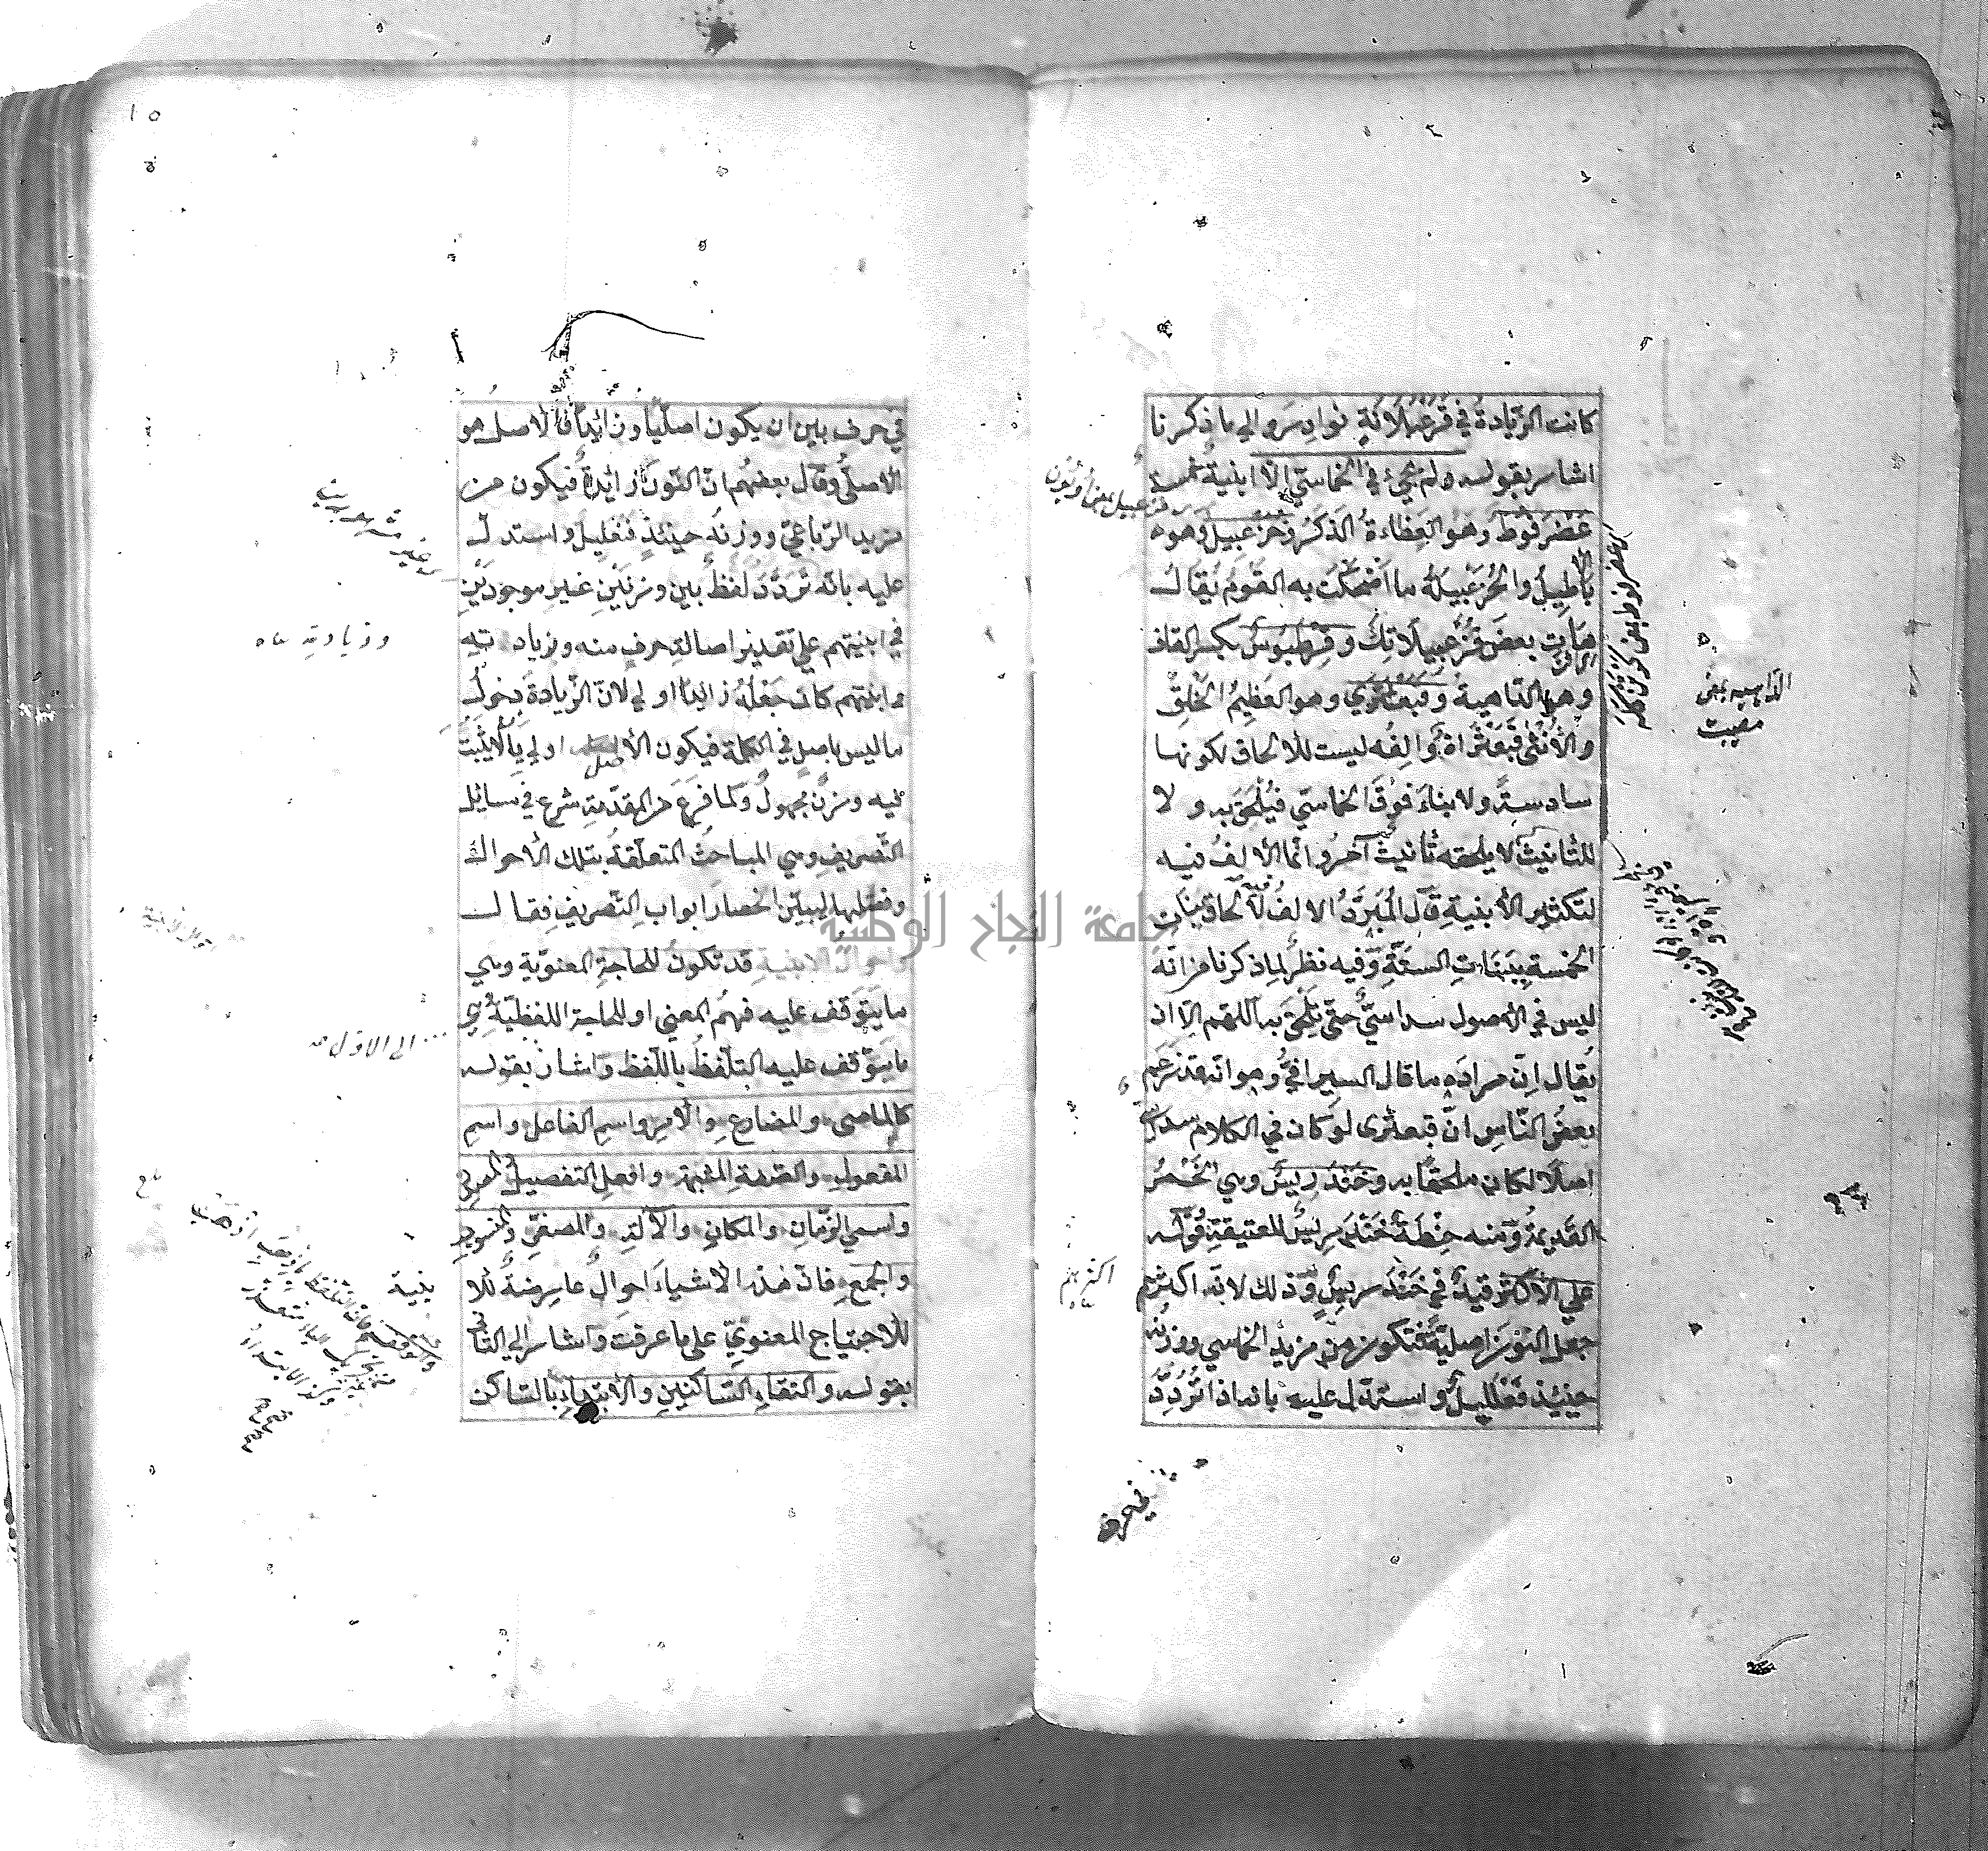 كانت الزّيادةُ في قُرَعْبَلَانَةٍ نوادرَ والي ما ذكرنا
اشار بقوله ولم يجئ في الخماسيّ الّا ابنيةٌ خمسة
عَضْرَفُوطٌ وهو العِظاءةُ الذَكَرُ وخُزَعْبِيلٌ وهو
الباطيلُ والخُزَعْبِيلَةُ ما اَضْحَكْتَ به القومَ يُقالُ
هاتِ بعضَ خُزَعْبِيلَاتِكَ وقِرْطَبُوسٌ بكسر القاف
وهو الدّاهيةُ وقَبَعْثَرَي وهو العَظِيمُ الخَلْقِ
والأُنْثٰى قَبَعْثَراةٌ والِفُه ليست للالحاق لكونها
سادسةً ولا بناءَ فوقَ الخماسيّ فيُلْحَقَ به ولا
للتأنيث لا يلحقه تأنيثٌ آخرُ وانّما الالفُ فيه
لتكثير الأبنيةِ قال المُبَرَّدُ الالفُ لالحاق بَناتِ
الخمسةِ بِبَنَاتِ الستّةِ وفيه نظرٌ لما ذكرنا من انّه
ليس في الأصول سداسيٌّ حتّى يُلْحَقَ به اللّهم الّا ان
يُقال اِنّ مرادَه ما قال السيرافيُّ وهو انّه قد زعَمَ
بعضُ النّاسِ انّ قبعثرى لو كان في الكلام سداسيّ
اصلًا لكان ملحقًا به وخَنْدَرِيسٌ وهي الخَمْرُ
القَديمةُ ومنه حِنْطَةٌ خَنْدَرِيسٌ للعتيقةِ قوله
علي الأكثر قيدٌ في خَنْدَرِيسٍ وذلك لانّه اكثرهم
جعل النونَ اصليّةً فتكون من مزيد الخماسي ووزنُه
حينئذ فَعْلَلِيلٌ واستدل عليه بانه اذا تُرُدِّدَ
الدّاهيه بمعنى
مصيبت
اكثرهم
في حرف
١٥
في حرف بين ان يكون اصليًّا وزائدًا فالاصلُ هو
الأصليُّ وقال بعضُهم انّ النّونَ زائدةٌ فيكون من
مزيد الرّباعيّ ووزنُه حينئذٍ فَنْعَلِيلٌ واستدلّ
عليه بانّه تَردَّدَ لفظٌ بين وزنَيْنِ غيرِ موجودَيْنِ
في ابنيتهم علي تقدير اصالةِ حرفٍ منه وزيادته
وابنيتهم كان جَعْلُه زائدًا اولي لانّ الزّيادةَ دخولُ
ما ليس باصلٍ في الكلمة فيكون الأصل اولي بَأَلَّا يَثبُتَ
فيه وزنٌ مجهولٌ ولما فرغ من المقدّمةِ شرع في مسائل
التّصريفِ وهي المباحثُ المتعلّقةُ بتلك الأحوال
وفصّلها ليبيّن انحصارَ ابواب التّصريفِ فقال
واحوالُ الابنيةِ قد تكونُ للحاجةِ المعنويّةِ وهي
ما يَتَوَقَف عليه فهمُ المعني او للحاجة اللفظيّةِ وهي
ما يتوّقف عليه التلفّظُ باللّفظ واشار بقوله
كالماضى والمضارعِ والأمرِ واسمِ الفاعلِ واسمِ
المفعولِ والصّفةِ المشبّهةِ وافعلِ التفضيل والمصدر
واسمي الزّمانِ والمكانِ والآلةِ والمصغّرِ والمنسوبِ
والجمعِ فانّ هذه الأشياءَ احوالٌ عارضةٌ للا
للاحتياج المعنويّ على ما عرفتَ واشار الي الثّاني
بقوله والتقاءِ السّاكنينِ والأبتداءِ بالسّاكن
وزيادته
الى الاوّل
بنية
جامعة النجاح الوطنية